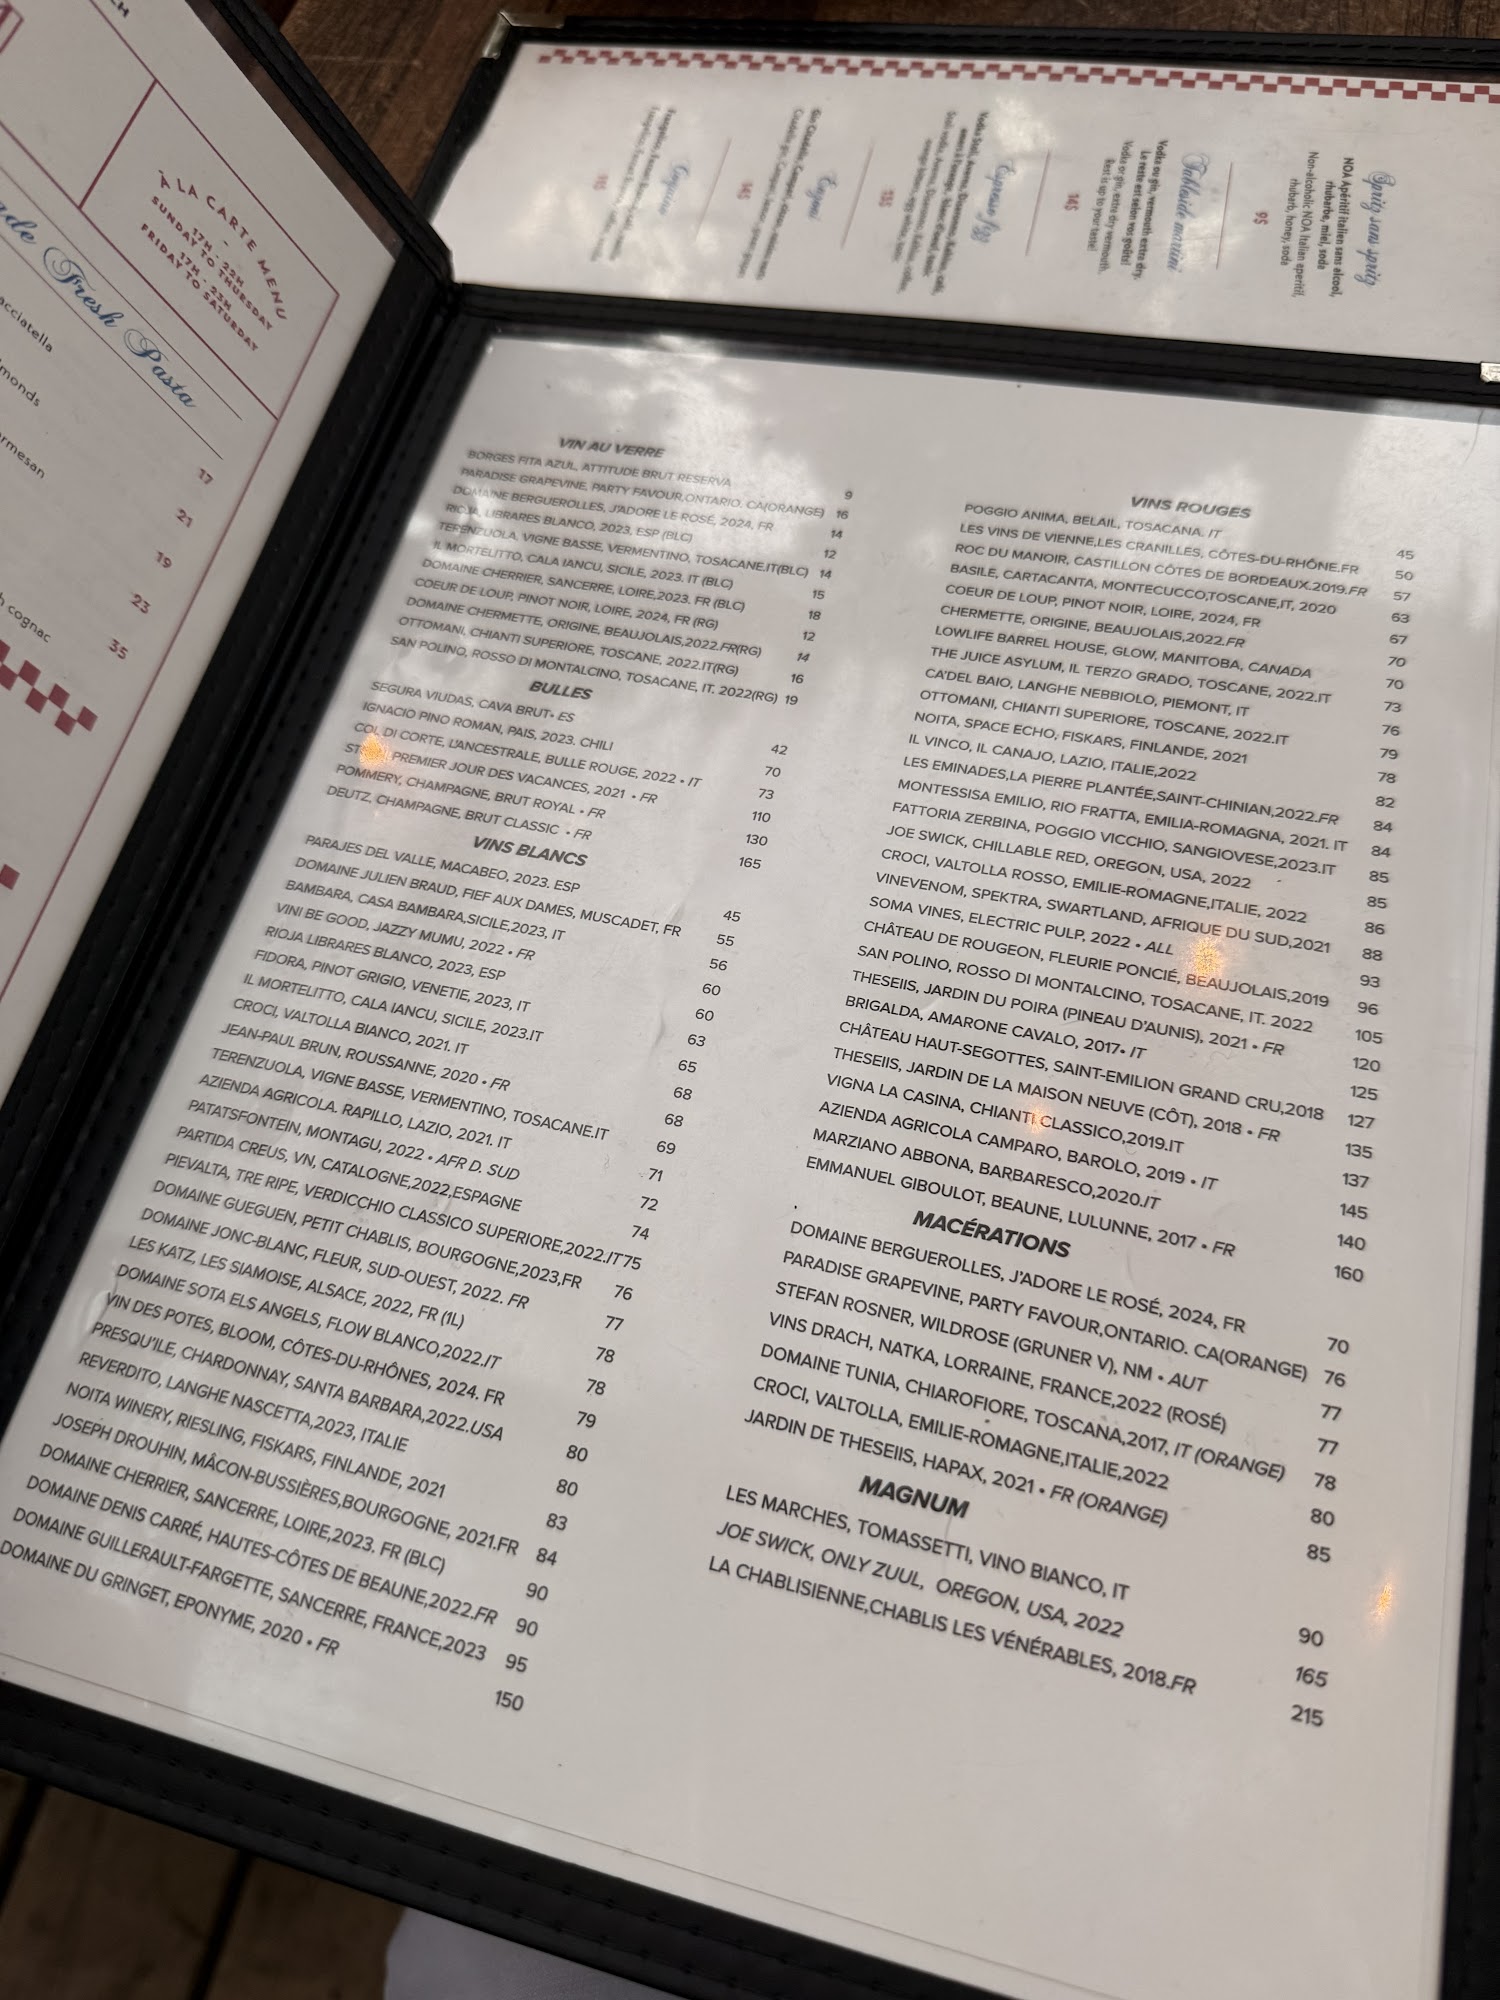 À LA CARTE MENU
-
17H - 22H
SUNDAY TO THURSDAY
17H - 23H
FRIDAY TO SATURDAY
Fresh Pasta
17
21
19
23
cognac
35
Spritz sans spritz
NOA Apéritif italien sans alcool,
rhubarbe, miel, soda
Non-alcoholic NOA Italian aperitif,
rhubarb, honey, soda
9$
Tableside martini
Vodka ou gin, vermouth extra dry.
Le reste est selon vos goûts!
Vodka or gin, extra dry vermouth.
Rest is up to your taste!
14$
Espresso fizz
VIN AU VERRE
BORGES FITA AZUL, ATTITUDE BRUT RESERVA 9
PARADISE GRAPEVINE, PARTY FAVOUR,ONTARIO. CA(ORANGE) 16
DOMAINE BERGUEROLLES, J'ADORE LE ROSÉ, 2024, FR 14
RIOJA, LIBRARES BLANCO, 2023, ESP (BLC) 12
TERENZUOLA, VIGNE BASSE, VERMENTINO, TOSACANE.IT(BLC) 14
IL MORTELITTO, CALA IANCU, SICILE, 2023. IT (BLC) 15
DOMAINE CHERRIER, SANCERRE, LOIRE,2023. FR (BLC) 18
COEUR DE LOUP, PINOT NOIR, LOIRE, 2024, FR (RG) 12
DOMAINE CHERMETTE, ORIGINE, BEAUJOLAIS,2022.FR(RG) 14
OTTOMANI, CHIANTI SUPERIORE, TOSCANE, 2022.IT(RG) 16
SAN POLINO, ROSSO DI MONTALCINO, TOSACANE, IT. 2022(RG) 19
BULLES
SEGURA VIUDAS, CAVA BRUT• ES 42
IGNACIO PINO ROMAN, PAIS, 2023. CHILI 70
COL DI CORTE, L'ANCESTRALE, BULLE ROUGE, 2022 • IT 73
PREMIER JOUR DES VACANCES, 2021 • FR 110
POMMERY, CHAMPAGNE, BRUT ROYAL • FR 130
DEUTZ, CHAMPAGNE, BRUT CLASSIC • FR 165
VINS BLANCS
PARAJES DEL VALLE, MACABEO, 2023. ESP 45
DOMAINE JULIEN BRAUD, FIEF AUX DAMES, MUSCADET, FR 55
BAMBARA, CASA BAMBARA,SICILE,2023, IT 56
VINI BE GOOD, JAZZY MUMU, 2022 • FR 60
RIOJA LIBRARES BLANCO, 2023, ESP 60
FIDORA, PINOT GRIGIO, VENETIE, 2023, IT 63
IL MORTELITTO, CALA IANCU, SICILE, 2023.IT 65
CROCI, VALTOLLA BIANCO, 2021. IT 68
JEAN-PAUL BRUN, ROUSSANNE, 2020 • FR 68
TERENZUOLA, VIGNE BASSE, VERMENTINO, TOSACANE.IT 69
AZIENDA AGRICOLA. RAPILLO, LAZIO, 2021. IT 71
PATATSFONTEIN, MONTAGU, 2022 • AFR D. SUD 72
PARTIDA CREUS, VN, CATALOGNE,2022,ESPAGNE 74
PIEVALTA, TRE RIPE, VERDICCHIO CLASSICO SUPERIORE,2022.IT 75
DOMAINE GUEGUEN, PETIT CHABLIS, BOURGOGNE,2023,FR 76
DOMAINE JONC-BLANC, FLEUR, SUD-OUEST, 2022. FR 77
LES KATZ, LES SIAMOISE, ALSACE, 2022, FR (1L) 78
DOMAINE SOTA ELS ANGELS, FLOW BLANCO,2022.IT 78
VIN DES POTES, BLOOM, CÔTES-DU-RHÔNES, 2024. FR 79
PRESQU'ILE, CHARDONNAY, SANTA BARBARA,2022.USA 80
REVERDITO, LANGHE NASCETTA,2023, ITALIE 80
NOITA WINERY, RIESLING, FISKARS, FINLANDE, 2021 83
JOSEPH DROUHIN, MÂCON-BUSSIÈRES,BOURGOGNE, 2021.FR 84
DOMAINE CHERRIER, SANCERRE, LOIRE,2023. FR (BLC) 90
DOMAINE DENIS CARRÉ, HAUTES-CÔTES DE BEAUNE,2022.FR 90
DOMAINE GUILLERAULT-FARGETTE, SANCERRE, FRANCE,2023 95
DOMAINE DU GRINGET, EPONYME, 2020 • FR 150
VINS ROUGES
POGGIO ANIMA, BELAIL, TOSACANA. IT 45
LES VINS DE VIENNE,LES CRANILLES, CÔTES-DU-RHÔNE.FR 50
ROC DU MANOIR, CASTILLON CÔTES DE BORDEAUX.2019.FR 57
BASILE, CARTACANTA, MONTECUCCO,TOSCANE,IT, 2020 63
COEUR DE LOUP, PINOT NOIR, LOIRE, 2024, FR 67
CHERMETTE, ORIGINE, BEAUJOLAIS,2022.FR 70
LOWLIFE BARREL HOUSE, GLOW, MANITOBA, CANADA 70
THE JUICE ASYLUM, IL TERZO GRADO, TOSCANE, 2022.IT 73
CA'DEL BAIO, LANGHE NEBBIOLO, PIEMONT, IT 76
OTTOMANI, CHIANTI SUPERIORE, TOSCANE, 2022.IT 79
NOITA, SPACE ECHO, FISKARS, FINLANDE, 2021 78
IL VINCO, IL CANAJO, LAZIO, ITALIE,2022 82
LES EMINADES,LA PIERRE PLANTÉE,SAINT-CHINIAN,2022.FR 84
MONTESSISA EMILIO, RIO FRATTA, EMILIA-ROMAGNA, 2021. IT 84
FATTORIA ZERBINA, POGGIO VICCHIO, SANGIOVESE,2023.IT 85
JOE SWICK, CHILLABLE RED, OREGON, USA, 2022 85
CROCI, VALTOLLA ROSSO, EMILIE-ROMAGNE,ITALIE, 2022 86
VINEVENOM, SPEKTRA, SWARTLAND, AFRIQUE DU SUD,2021 88
SOMA VINES, ELECTRIC PULP, 2022 • ALL 93
CHÂTEAU DE ROUGEON, FLEURIE PONCIÉ, BEAUJOLAIS,2019 96
SAN POLINO, ROSSO DI MONTALCINO, TOSACANE, IT. 2022 105
THESEIIS, JARDIN DU POIRA (PINEAU D'AUNIS), 2021 • FR 120
BRIGALDA, AMARONE CAVALO, 2017• IT 125
CHÂTEAU HAUT-SEGOTTES, SAINT-EMILION GRAND CRU,2018 127
THESEIIS, JARDIN DE LA MAISON NEUVE (CÔT), 2018 • FR 135
VIGNA LA CASINA, CHIANTI CLASSICO,2019.IT 137
AZIENDA AGRICOLA CAMPARO, BAROLO, 2019 • IT 145
MARZIANO ABBONA, BARBARESCO,2020.IT 140
EMMANUEL GIBOULOT, BEAUNE, LULUNNE, 2017 • FR 160
MACÉRATIONS
DOMAINE BERGUEROLLES, J'ADORE LE ROSÉ, 2024, FR 70
PARADISE GRAPEVINE, PARTY FAVOUR,ONTARIO. CA(ORANGE) 76
STEFAN ROSNER, WILDROSE (GRUNER V), NM • AUT 77
VINS DRACH, NATKA, LORRAINE, FRANCE,2022 (ROSÉ) 77
DOMAINE TUNIA, CHIAROFIORE, TOSCANA,2017, IT (ORANGE) 78
CROCI, VALTOLLA, EMILIE-ROMAGNE,ITALIE,2022 80
JARDIN DE THESEIIS, HAPAX, 2021 • FR (ORANGE) 85
MAGNUM
LES MARCHES, TOMASSETTI, VINO BIANCO, IT 90
JOE SWICK, ONLY ZUUL, OREGON, USA, 2022 165
LA CHABLISIENNE,CHABLIS LES VÉNÉRABLES, 2018.FR 215